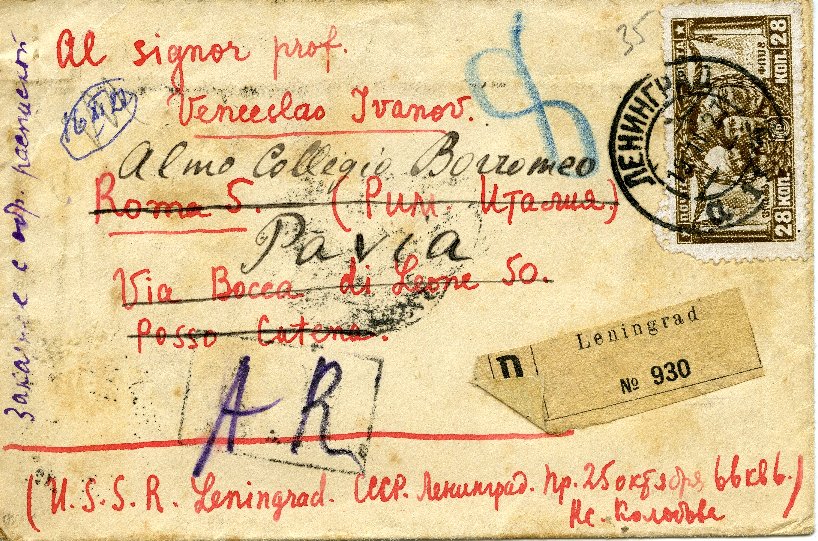 Al signor prof.
Venceslao Ivanov.
Almo Collegio Borromeo
Roma 5. (Рим. Италия.)
Pavia
Via Bocca di Leone 50.
Posso Catena.
A. R.
Заказное с обр. распиской
35
ЛЕНИНГРАД
28 КОП. ПОЧТА КОП. 28
П
Leningrad
№ 930
(U.S.S.R. Leningrad. СССР. Ленинград. Пр. 25 октября, 66 кв 6.)
Кс. Колобова